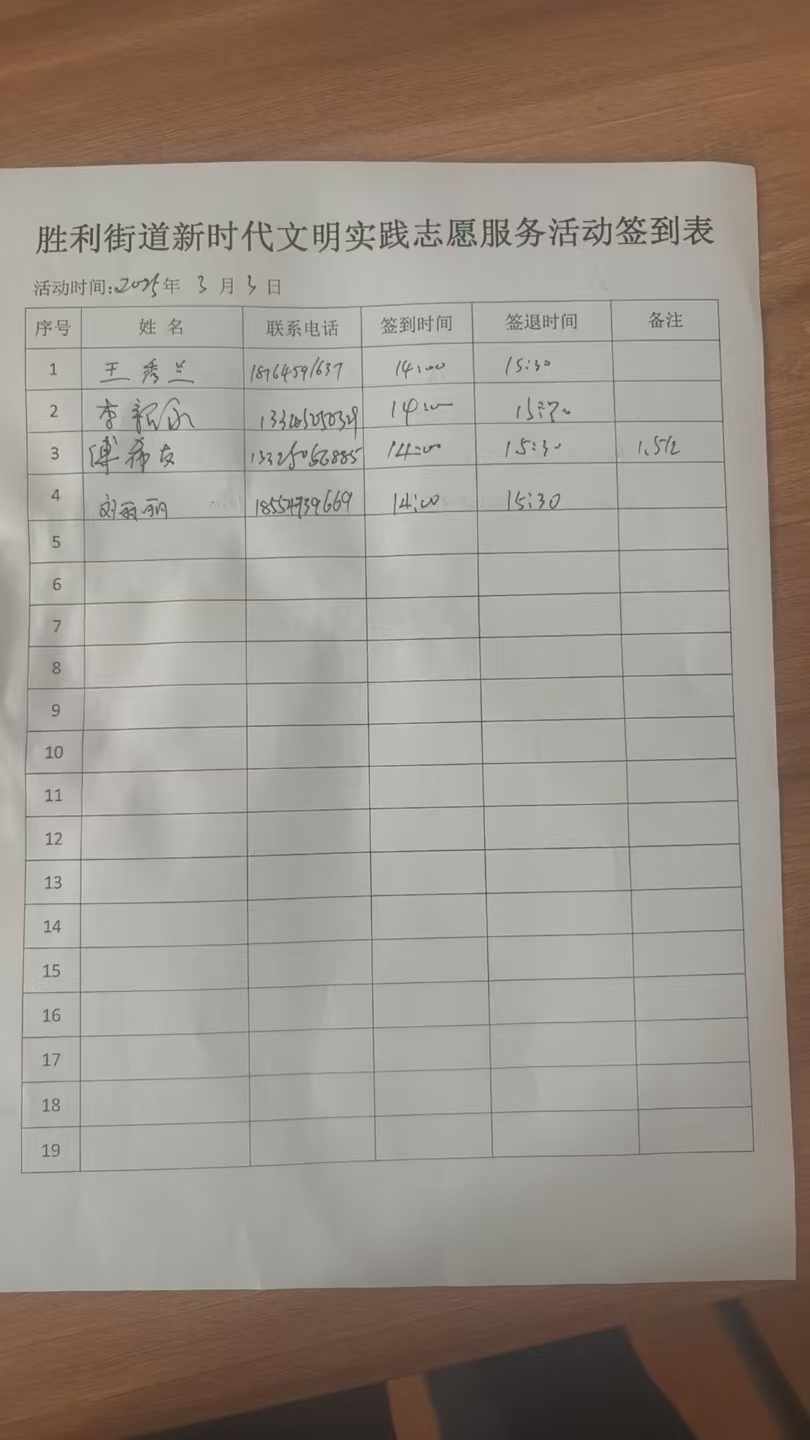 胜利街道新时代文明实践志愿服务活动签到表
活动时间:2025年 3 月 3 日
序号 姓 名 联系电话 签到时间 签退时间 备注
1 王秀兰 18764591637 14:00 15:30
2 李 14:00
3 傅希友 13325056885 14:00 15:30
4 刘丽丽 14:00 15:30
5
6
7
8
9
10
11
12
13
14
15
16
17
18
19